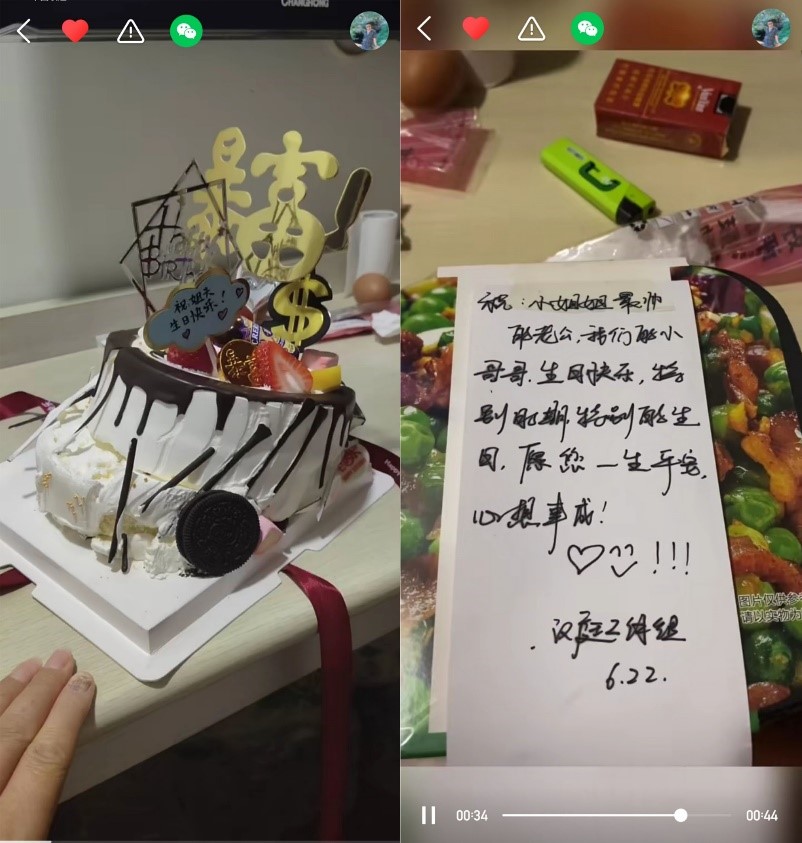 CHANGHONG
暴富
祝:姐夫
生日快乐!
$
祝:小姐姐最帅
的老公,我们的小
哥哥.生日快乐,特
别时期.特别的生
日.愿您一生平安,
心想事成!
!!!
汉庭工作组
6.22.
图片仅供参
请以实物为
00:34
00:44